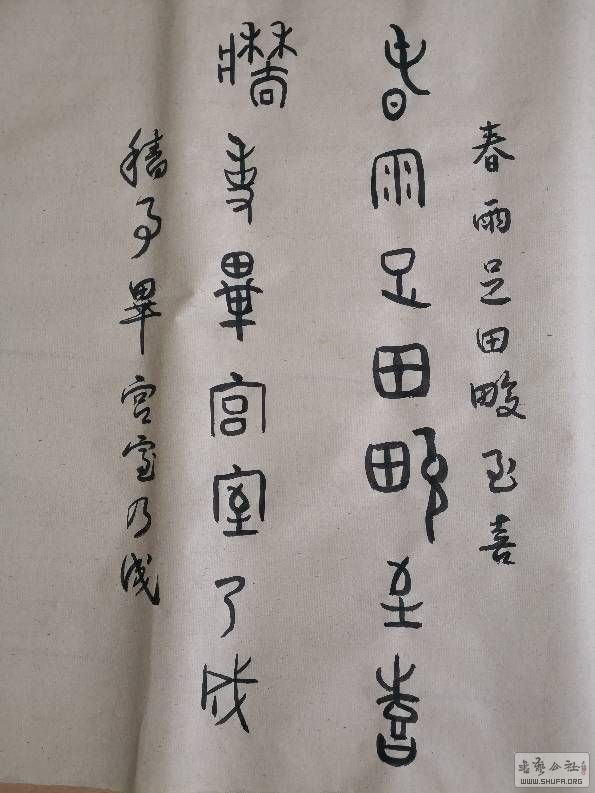 春雨足田畯至喜
春雨足田畯至喜
牆事畢宫室乃成
穡事畢宫室乃成
书艺公社
WWW.SHUFA.ORG